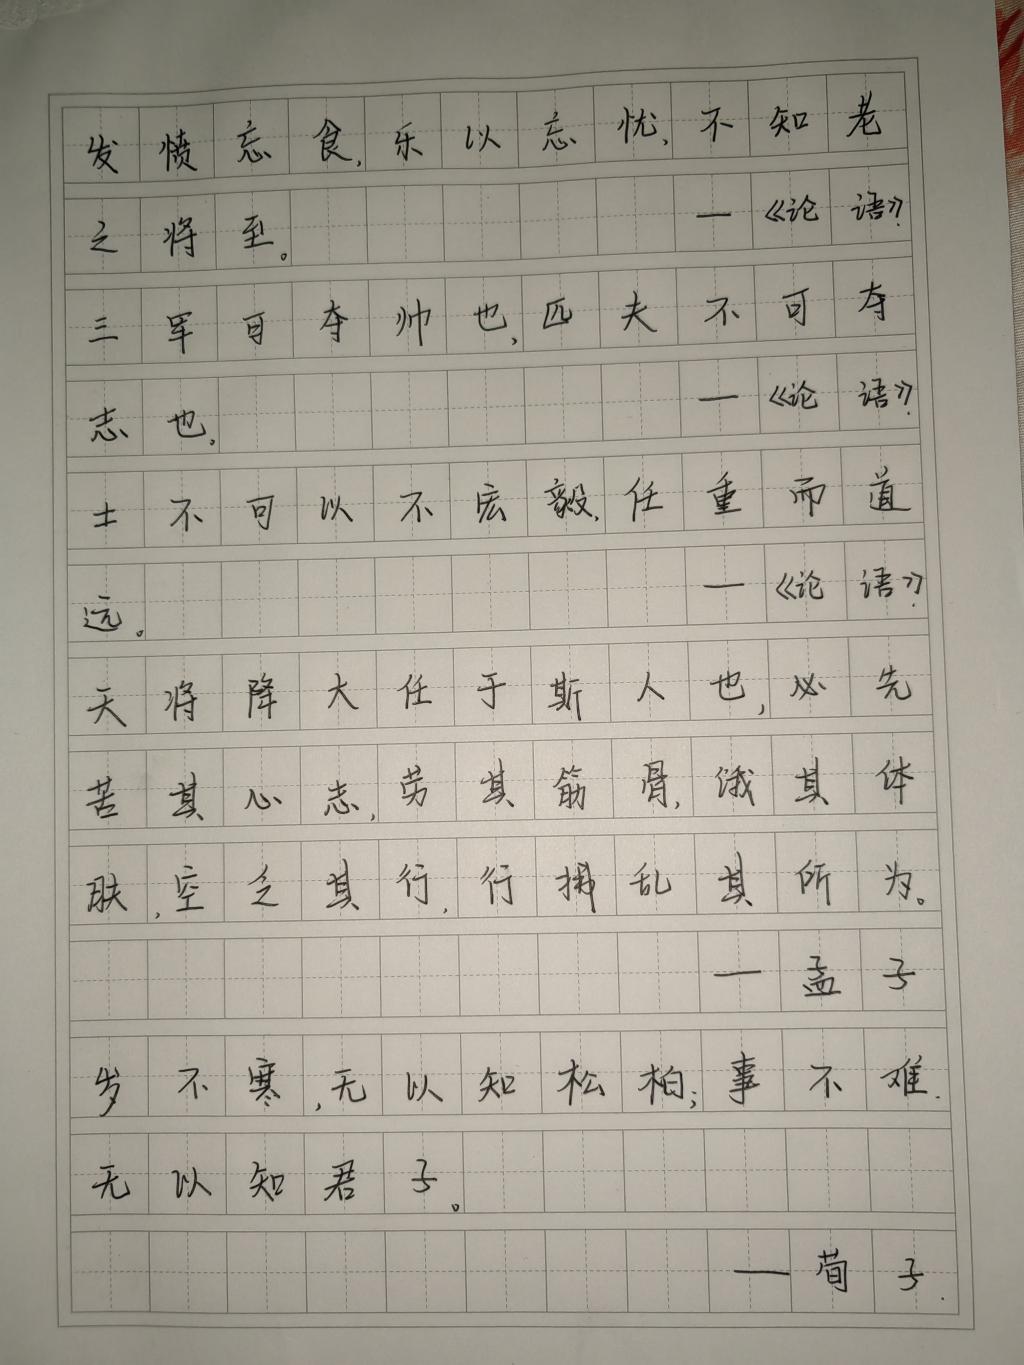 发愤忘食,乐以忘忧,不知老
之将至。 —《论语》
三军可夺帅也,匹夫不可夺
志也, —《论语》.
士不可以不宏毅,任重而道
远。 —《论语》.
天将降大任于斯人也,必先
苦其心志,劳其筋骨,饿其体
肤,空乏其行,行拂乱其所为。
—孟子
岁不寒,无以知松柏;事不难.
无以知君子。
—荀子.